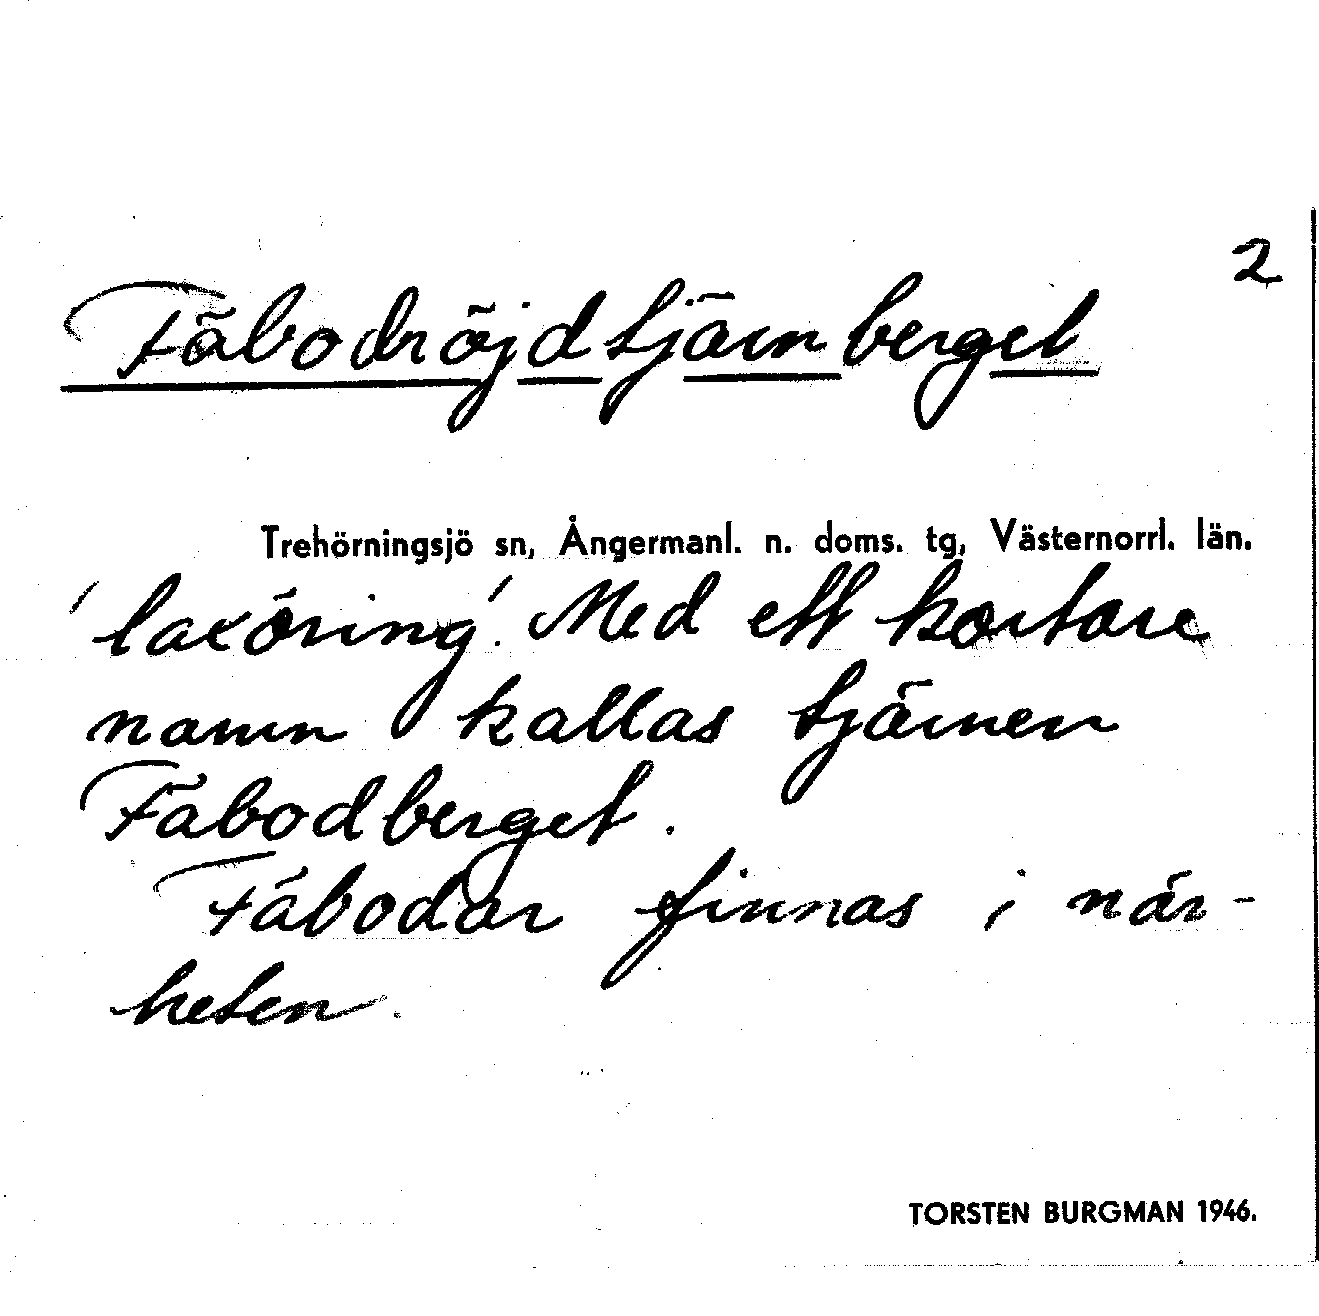 2
Fäbodröjdtjärnberget
Trehörningsjö sn, Ångermanl. n. doms. tg, Västernorrl. län.
'laxöring'. Med ett kortare
namn kallas tjärnen
Fäbodberget.
Fäbodar finnas i när-
heten.
TORSTEN BURGMAN 1946.